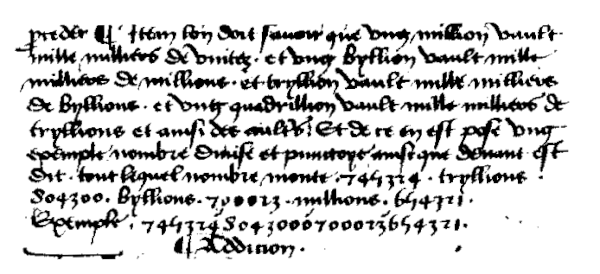 preder ¶ Item lon doit savoir que ung million vault
mille milliers de unitez . et ung byllion vault mille
milliers de millions . et tryllion vault mille milliers
de byllions . et ung quadrillion vault mille milliers de
tryllions et ainsi des aultrs̃ Et de ce en est pose ung
exemple nombre divise et punctoye ainsi que devant est
dit . tout lequel nombre monte . 745324 . tryllions .
804300 . byllions . 700023 . millions . 654321 .
Exemple . 745324'8043000'700023'654321 .
¶ Addicion .